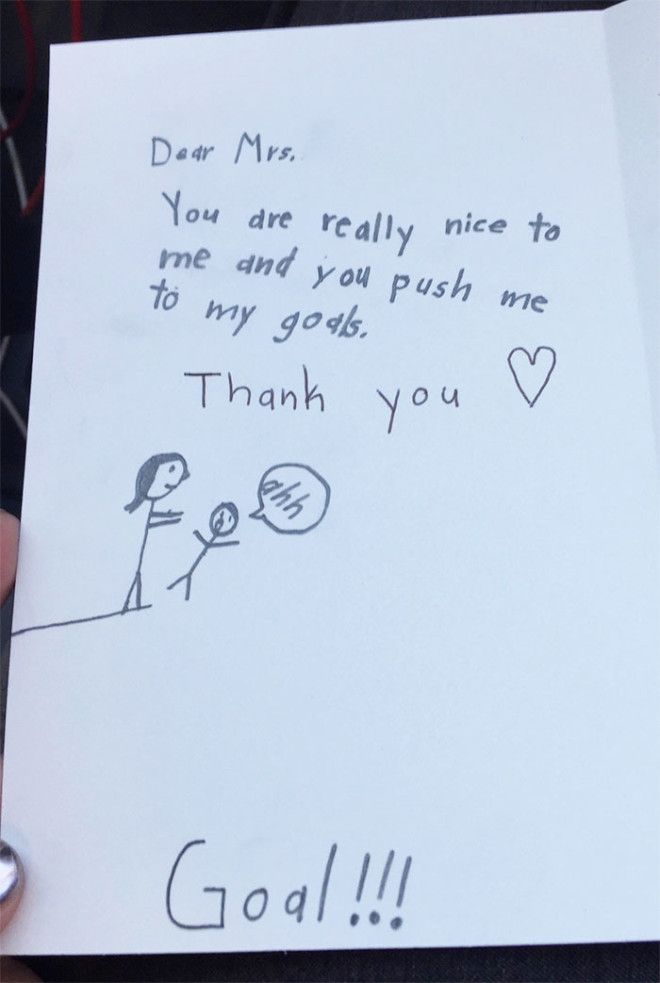 Dear Mrs.
You are really nice to
me and you push me
to my goals.
Thank you ♡
ahh
Goal!!!